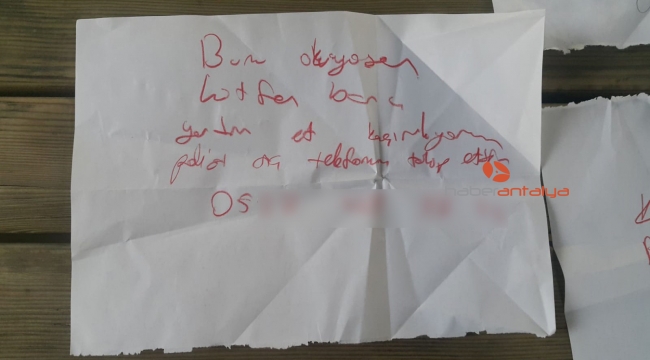 Bunu okuyosan
Lütfen bana
yardım et kaçırılıyorum
polisi ara telefonumu takip ettir
05
haberantalya